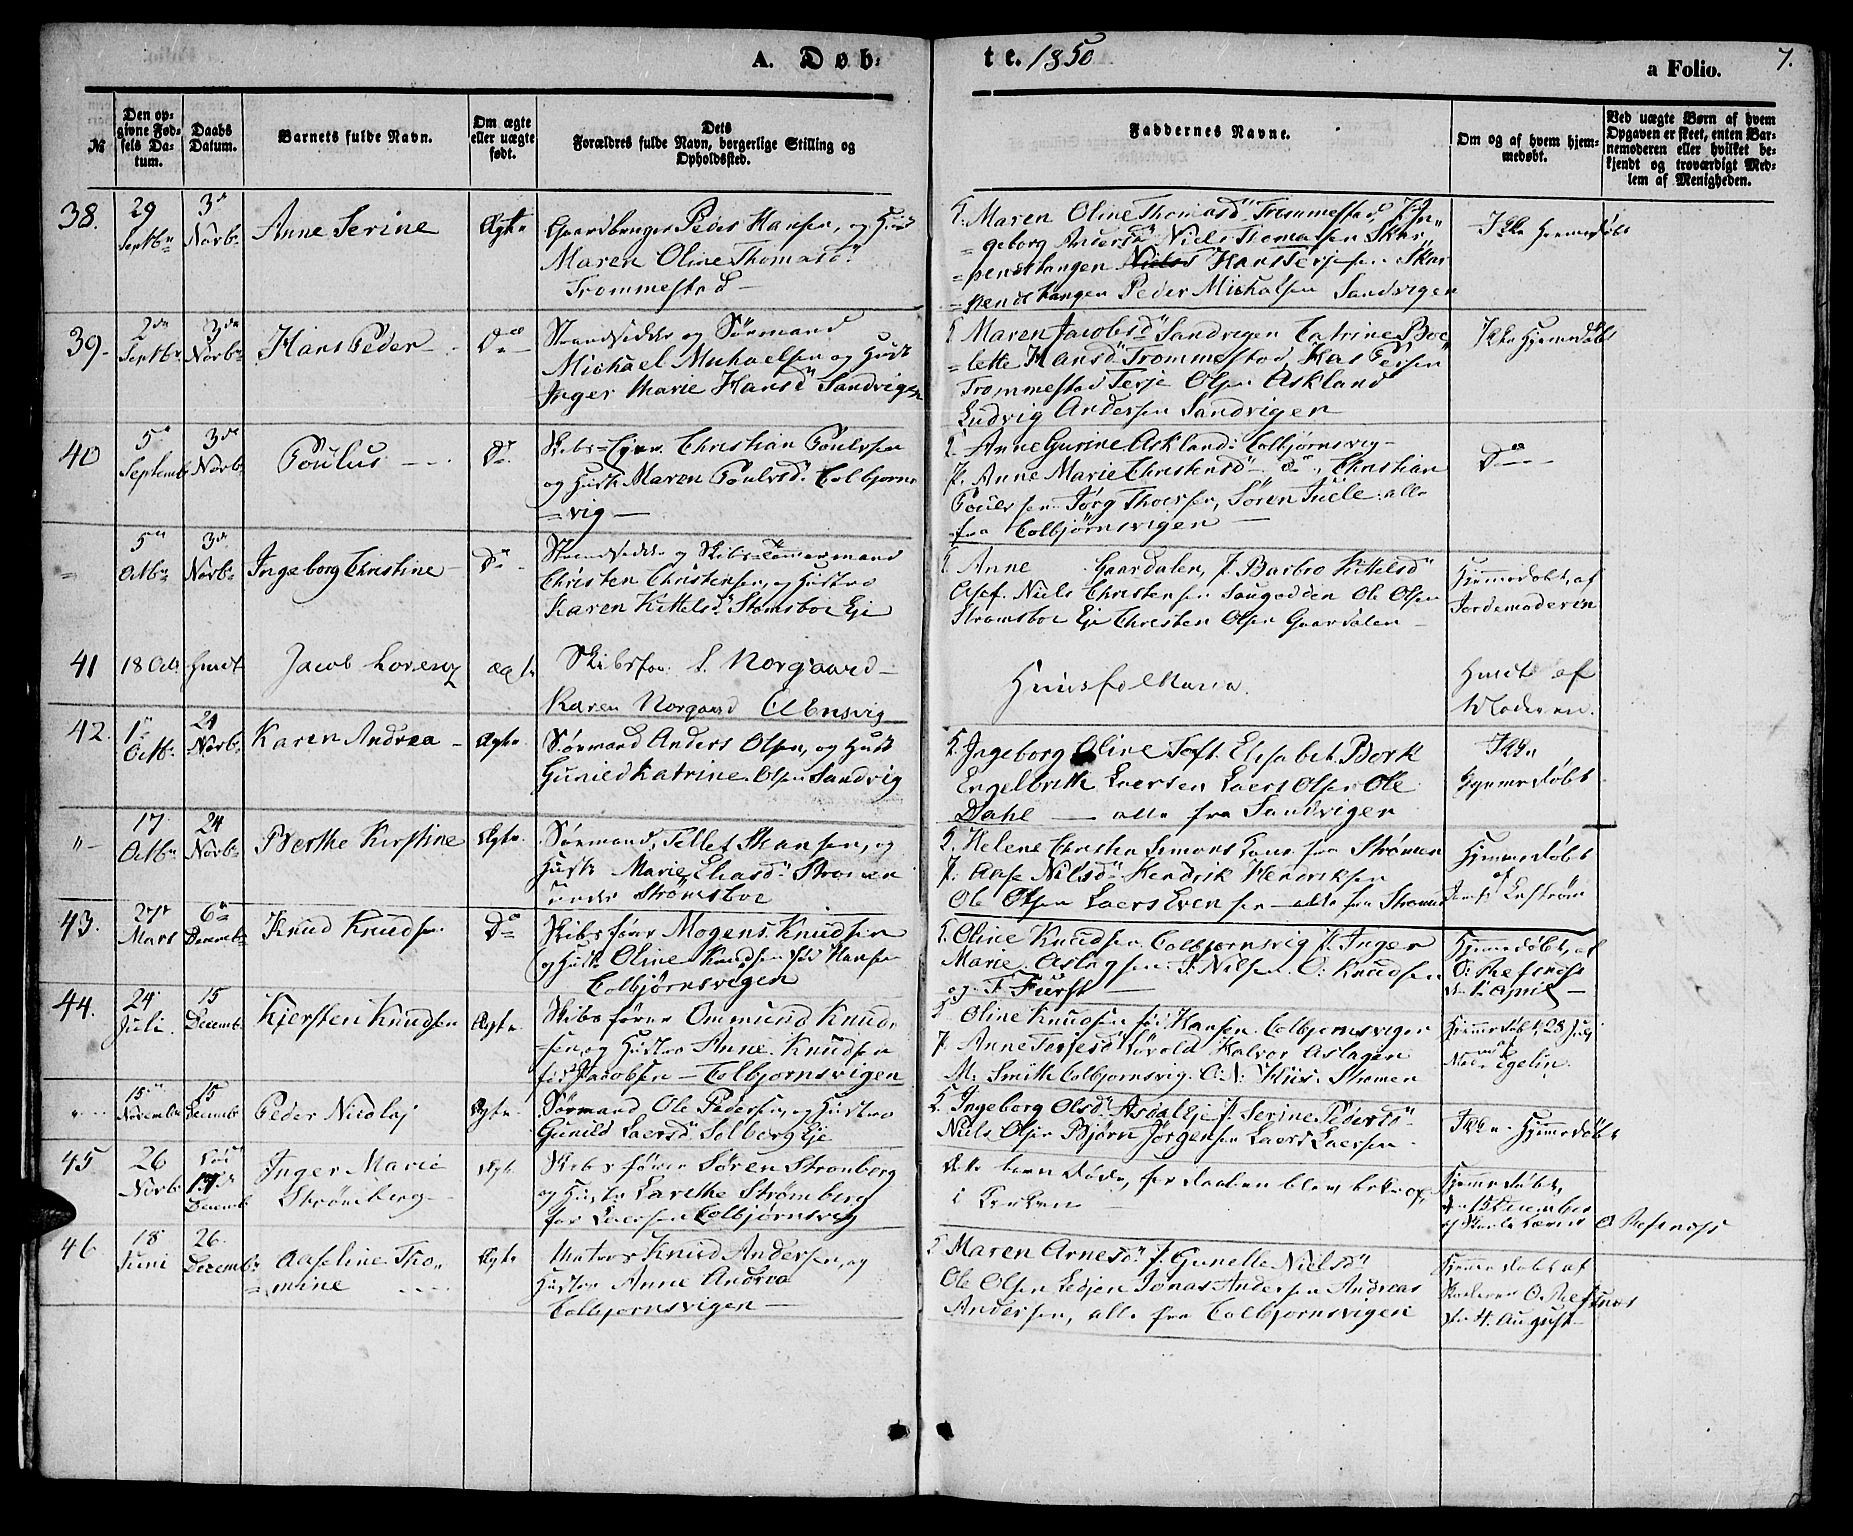 A. Døb-
te. 1850
a Folio.
7.
№
Den op-
givne Fød-
sels Da-
tum.
Daabs
Datum.
Barnets fulde Navn.
Om ægte
eller uægte
født.
Dets
Forældres fulde Navn, borgerlige Stilling og
Opholdssted.
Faddernes Navne.
Om og af hvem hjem-
medøbt.
Ved uægte Børn af hvem
Opgaven er skeet, enten Bar-
nemoderen eller hvilket be-
kjendt og troværdigt Med-
lem af Menigheden.
38.
29
Septbr
3de
Novb.
Anne Serine
Ægte
Gaardbruger Peder Hansen, og Hust
Maren Oline Thomasd.
Trommestad
Maren Oline Thomasd. Trommestad In-
geborg Andersd. Niels Thomassen Skar-
Hans Terjesen Skar-
Peder Michalsen Sandvigen
Ikke Hjemmedøbt
39.
2den
Septbr
3de
Novb.
Hans Peder
Do
Strandsidder og Sømand
Michael Michaelsen og Hust
Inger Marie Hansd. Sandvigen
Maren Jacobsd. Sandvigen Catrine Boe-
lette Hansd. Trommestad
Trommestad Terje Olsen Askland
Ludvig Andersen Sandvigen
Ikke Hjemmedøbt
40
5te
Septemb
3de
Novb.
Poulus
Do.
Christian Poulsen
og Hust. Maren Poulsd. Colbjørns-
vig
Anne Gurine Askland: Colbjørnsvig
Anne Marie Christensd. do, Christian
Poulsen Jørg Søren Juele alle
fra Colbjørnsvigen
Do
5te
Octbr
3de
Novb.
Ingeborg Christine
Do
Strandsidder og Skibstømmermand
Christen Christensen, og Hustru
Karen Kittelsd. Stømsboe Eje
Anne Gaardalen, J. Barbro Kittelsd.
Niels Christensen Ole Olsen
Strømsboe Eje Christen Olsen Gaardalen
Hjemmedøbt af
Jordemoderen
41
18 Oct.
Jacob Lorenz
ægte
Skibsfør. L. Norgaard
Karen Norgaard
af
Moderen.
42.
1te
Octb.
24
Novb.
Karen Andrea
Ægte
Sømand Anders Olsen, og Hust
Gunild Katrine Olsen Sandvig
Ingeborg Oline Toft. Elisabet Bork
Engelbrett Laersen Laers Olsen Ole
Dahl alle fra Sandvigen
Ikke
Hjemmedøbt
17
Octbr
24
Novb.
Berthe Kirstine
Ægte
Sømand, Tellef Hansen, og
Hust. Marie Eliasd. Strømen
under Strømsboe
Helene Christen Simons Kone fra Strømen
J. Aase Nilsd. Hendrik Hendriksen
Ole Olsen Laers Evensen alle fra Strømen
Hjemmedøbt
af
43.
27de
Mars
6te
Decemb.
Knud Knudsen
Do
Skibsfører Mogens Knudsen
og Hust. Oline Knudsen fød Hansen
Colbjørnsvigen
Oline Knudsen Colbjørnsvig J. Inger
Marie Aslagsen J. Nilsen O. Knudsen
og F. Furst
Hjemmedøbt, af
O: Refsnes
April
44.
24
Juli.
15
Decemb.
Kjersten Knudsen
Ægte
Skibsfører Ommund Knud-
sen, og Hustru Anne Knudsen
fød Jacobsen Colbjørnsvigen
Oline Knudsen fød Hansen Colbjørnsvigen
J. Anne Tarjesd. Løvold Halvor Aslagsen
M. Smith Colbjørnsvig. C. N. Kiis. Strømen
Hjemmedøbt 28 July
Egelin.
15de
Novembr
15
Decemb.
Peder Nicolaj
Ægte
Sømand, Ole Pedersen, og Hustru
Gunild Laersd. Solberg Eje
Ingeborg Olsd. Asdal Eje J. Serine Pedersd.
Niels Olsen Bjørn Jørgensen Laers Laersen
Ikke Hjemmedøbt
45
26
Novb.
17de
Decemb
Inger Marie
Strømberg
Ægte
Skibsfører Søren Stromberg
og Hustru Larethe Strømberg
fød Laersen Colbjørnsvig
Dette barn døde, før daaben blev
i Kirken
Hjemmedøbt,
d. 15 December
O. Refsnes
46.
18
Juni
26.
Decemb.
Aaseline Tho-
mine
Ægte
Matros Knud Andersen, og
Hustru Anne Andrea
Colbjørnsvigen
Maren Arnesd. J. Gunelle Nielsd.
Ole Olsen Jonas Andersen Andreas
Andersen, alle fra Colbjørnsvigen
Hjemmedøbt af
O. Refsnes
4. August